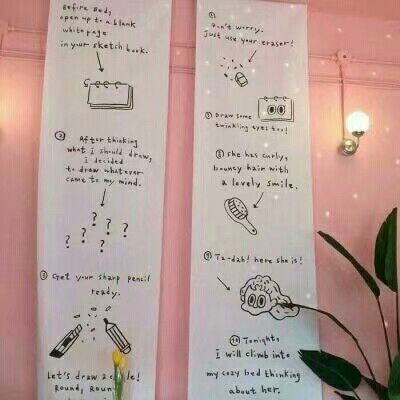 Before Bed,
open up to a blank
white page
in your sketch book.
② After thinking
what I should draw,
I decided
to draw whatever
came to my mind.
? ? ? ? ? ?
③ Get your sharp pencil
ready.
Let's draw a circle!
Round, Roun
⑥
Don't worry.
Just use your eraser!
⑦ Draw some
twinkling eyes too!
⑧ She has curly,
bouncy hair with
a lovely smile.
⑨ Ta-dah! here she is!
⑩ Tonight,
I will climb into
my cozy bed thinking
about her.